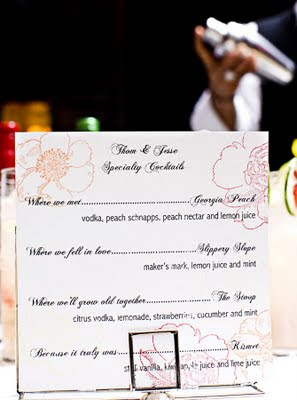 Thom & Jesse
Specialty Cocktails
Where we met..............................Georgia Peach
vodka, peach schnapps, peach nectar and lemon juice
Where we fell in love....................Slippery Slope
maker's mark, lemon juice and mint
Where we'll grow old together.......................The Stoop
citrus vodka, lemonade, strawberries, cucumber and mint
Because it truly was....................Kismet
vanilla, juice and lime juice